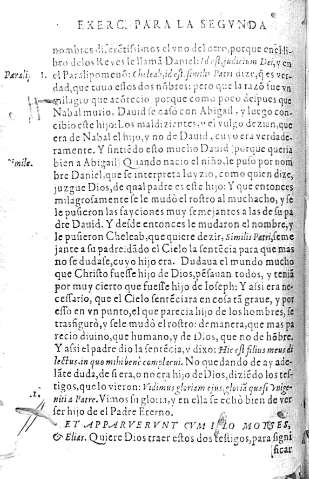 EXERC. PARA LA SEGVNDA
nombres diferẽtissimos el vno del otro, porque en el libro
de los Reyes le llamã Daniel: Id est, iudicium Dei, y en
Parali. 1. el Paralipomenõ: Cheleab, id est, similis Patri dize, q̃ es verdad,
que tuuo estos dos nõbres: pero que la razõ fue vn
milagro que acõtecio porque como poco despues que
Nabal murio, Dauid se caso con Abigail, y luego concibio
este hijo: Los maldizientes, y el vulgo dezian, que
era de Nabal el hijo, y no de Dauid, cuyo era verdaderamente.
Y sintiẽdo esto mucho Dauid (porque queria
Simile. bien a Abigail) Quando nacio el niño, le puso por nombre
Daniel, que se interpreta Iuyzio, como quien dize,
juzgue Dios, de qual padre es este hijo: Y que entonces
milagrosamente se le mudò el rostro al muchacho, y se
le pusieron las fayciones muy semejantes a las de su padre
Dauid. Y desde entonces le mudaron el nombre, y
le pusieron Cheleab, que quiere dezir, Similis Patri, semejante
a su padre, dãdo el Cielo la sentẽcia para que mas
no se dudase, cuyo hijo era. Dudaua el mundo mucho
que Christo fuesse hijo de Dios, pẽsauan todos, y teniã
por muy cierto que fuesse hijo de Ioseph: Y assi era necessario,
que el Cielo sentẽciara en cosa tã graue, y por
esso en vn punto, el que parecia hijo de los hombres, se
trasfigurò, y se le mudò el rostro: de manera, que mas parecio
diuino, que humano, y de Dios, que no de hõbre.
Y assi el padre dio la sentẽcia, y dixo: Hic est filius meus dilectus
in quo mihi bene complacui. No quedando de ay adelãte
duda, de si era, o no era hijo de Dios, diziẽdo los testigos,
que lo vieron: Vidimus gloriam ejus, gloriã quasi Vnigeniti
.1. a Patre. Vimos su gloria, y en ella se echò bien de ver
ser hijo de el Padre Eterno.
ET APPARVERVNT CVM ILLO MOYSES,
& Elias. Quiere Dios traer estos dos testigos, para signi
ficar